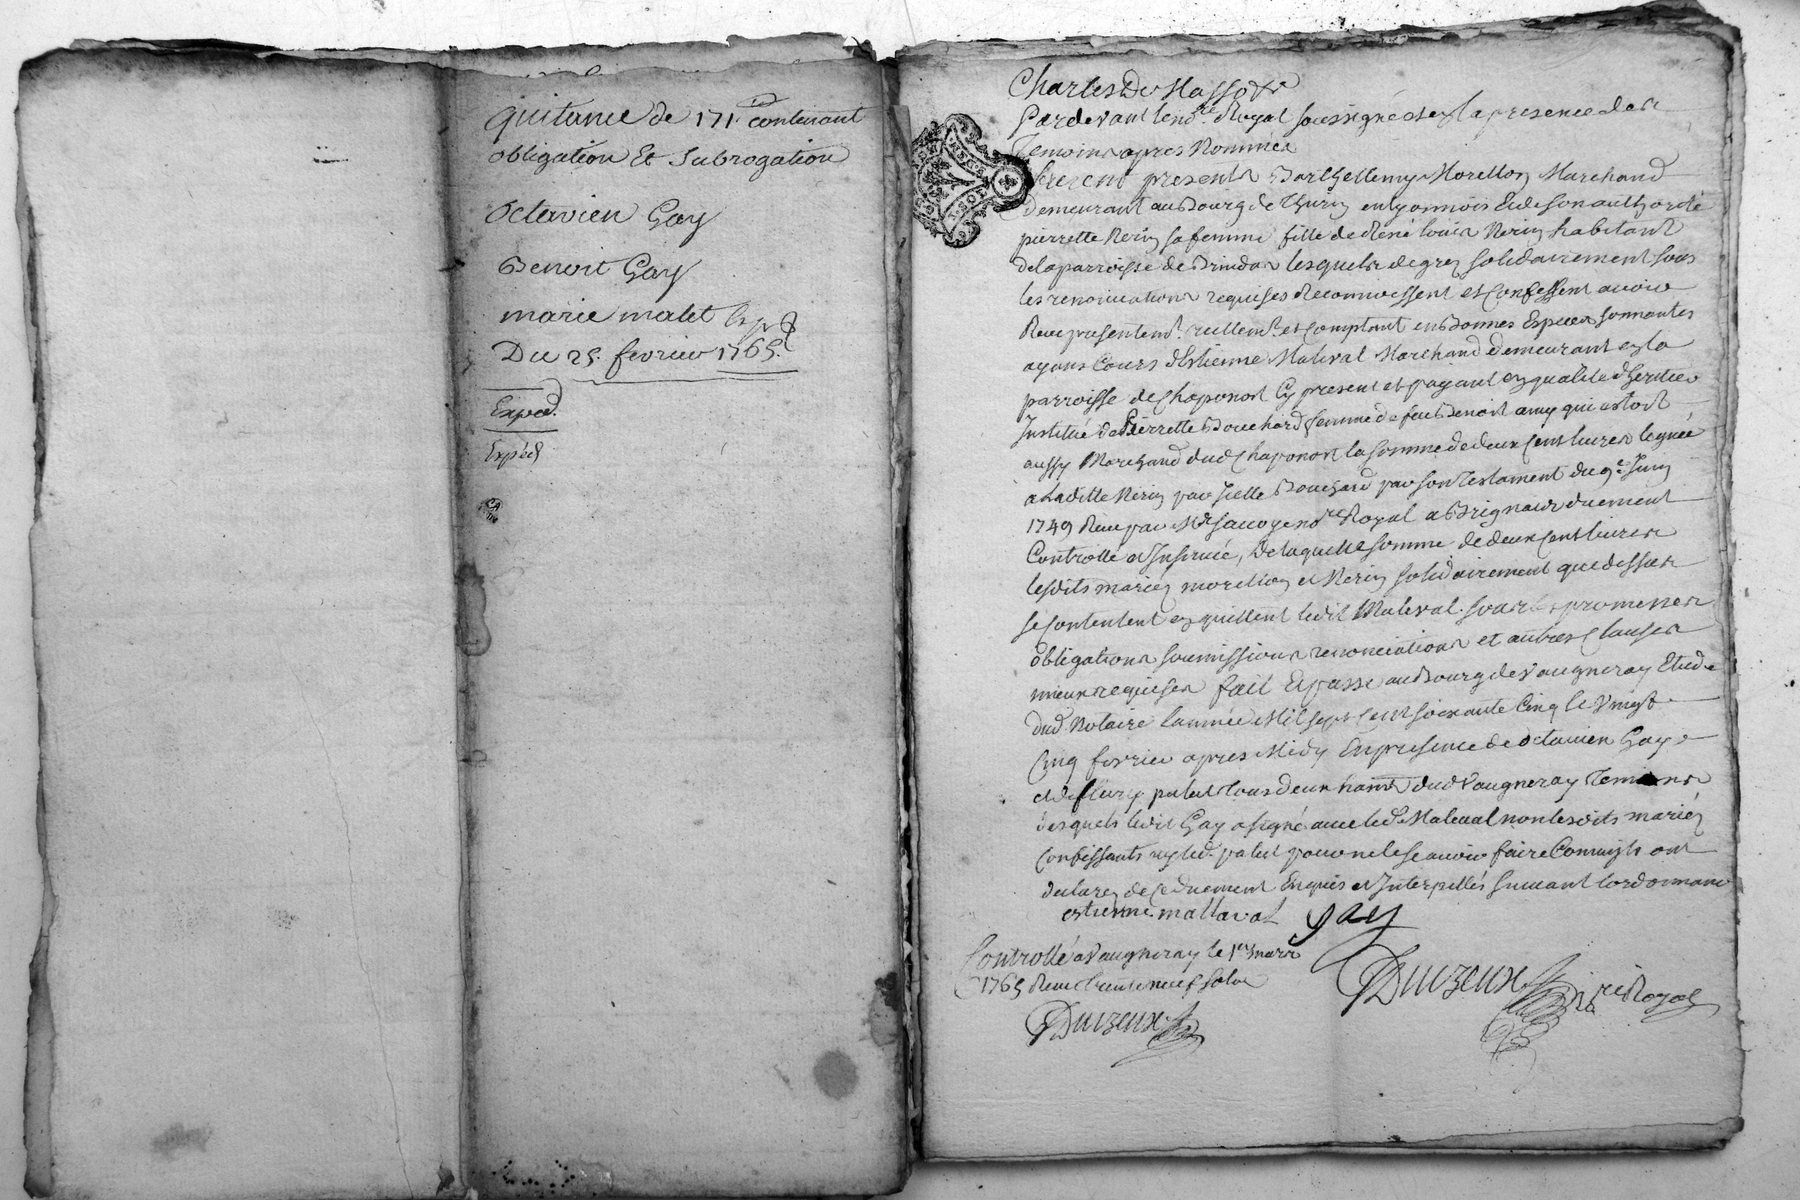 quitance de 171.# contenant
obligation Et Subrogation
Octavien Gay
Benoit Gay
marie matet
Du 25. fevrier 1765.
Exped.
Expéd
Charles De Masso &c
Pardevant le no.re Royal soussigné et en la presence des
Temoins apres Nommés
furent presents Barthellemy Morellon Marchand
demeurant au Bourg de Thurin en lyonnois et de son authorité
pierrette Nerin sa femme fille de Rene louis Nerin habitant
de la parroisse de Brindas lesquels de grez solidairement sous
les renonciations requises Reconnoissent et Confessent avoir
Receu presentem.t reellem.t et comptant en Bonnes Especes sonnantes
ayans Cours d'Estienne Maleval Marchand demeurant en la
parroisse de Chaponost Cy present et payant en qualité d'heritier
Institué de Pierrette Bouchard femme de feu Benoit qui estoit
aussy Marchand dud Chaponost la somme de deux Cent livres leguée
a Laditte Nerin par Icelle Bouchard par son Testament du 9.e Juin
1749 Receu par M.e Savoye no.re Royal a Brignais duement
Controllé et Insinué, De laquelle somme de deux Cent livres
lesdits mariez morellon et Nerin solidairement que dessus
se Contentent en quittent ledit Maleval promesses
obligations soumissions renonciations et autres Clauses
mieux requises fait Et passé au Bourg de Vaugneray Etude
dud Notaire l'année Mil sept Cent soixante Cinq le Vingt
Cinq fevrier apres Midy En presence de Octavien Gay
et de fleury palut tous deux habts dud Vaugneray Temoins
desquels ledit Gay a signé avec led Maleval non lesdits mariez
Confessants ny led. palut pour ne le scavoir faire Comme ils ont
declaré de Ce duement Enquis et Interpellés suivant l'ordonnance
estienne mallaval gay
Controllé a Vaugneray le 1er mars
1765 Receu trente neuf sols
Duizeux
Duizeux N.re Royal